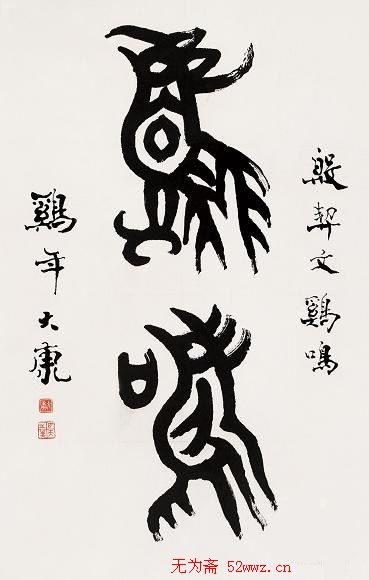 殷契文鷄鳴
鷄鳴
鷄年大康
无为斋 52wwz.cn